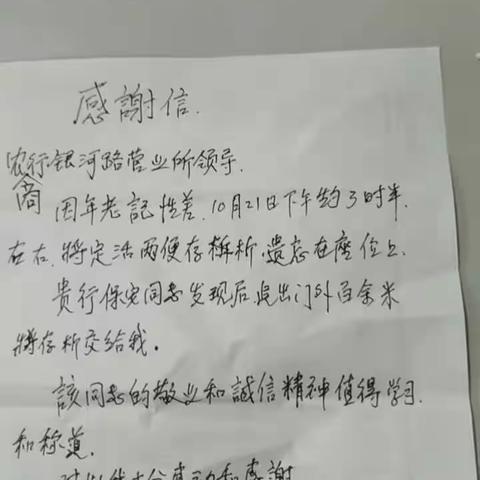 感謝信.
农商行银河路营业所领导.
因年老記性差.10月21日下午约3时半.
左右.将定活两便存摺折.遗忘在座位上.
贵行保安同志发现后.追出门外百余米
將存折交给我。
該同志的敬业和誠信精神值得学习.
和称道.
对此我十分感动和感謝